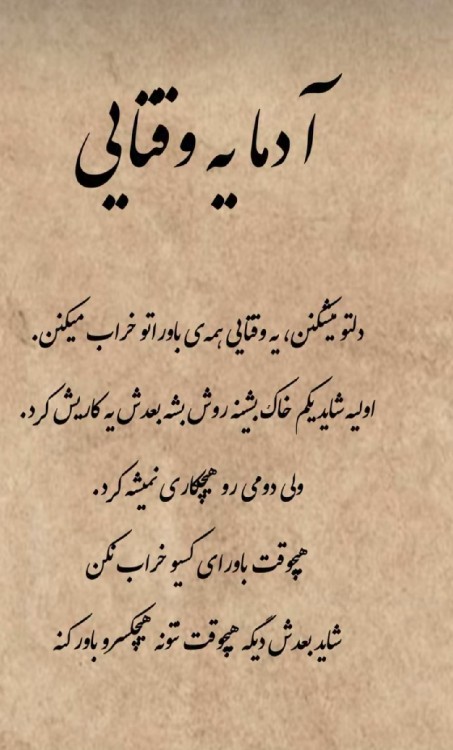 آدما یه وقتایی
دلتو میشکنن، یه وقتایی همه‌ی باوراتو خراب میکنن.
اولیه شاید یکم خاک بشینه روش بشه بعدش یه کاریش کرد.
ولی دومی رو هیچکاری نمیشه کرد.
هیچوقت باورای کسیو خراب نکن
شاید بعدش دیگه هیچوقت نتونه هیچکسرو باور کنه